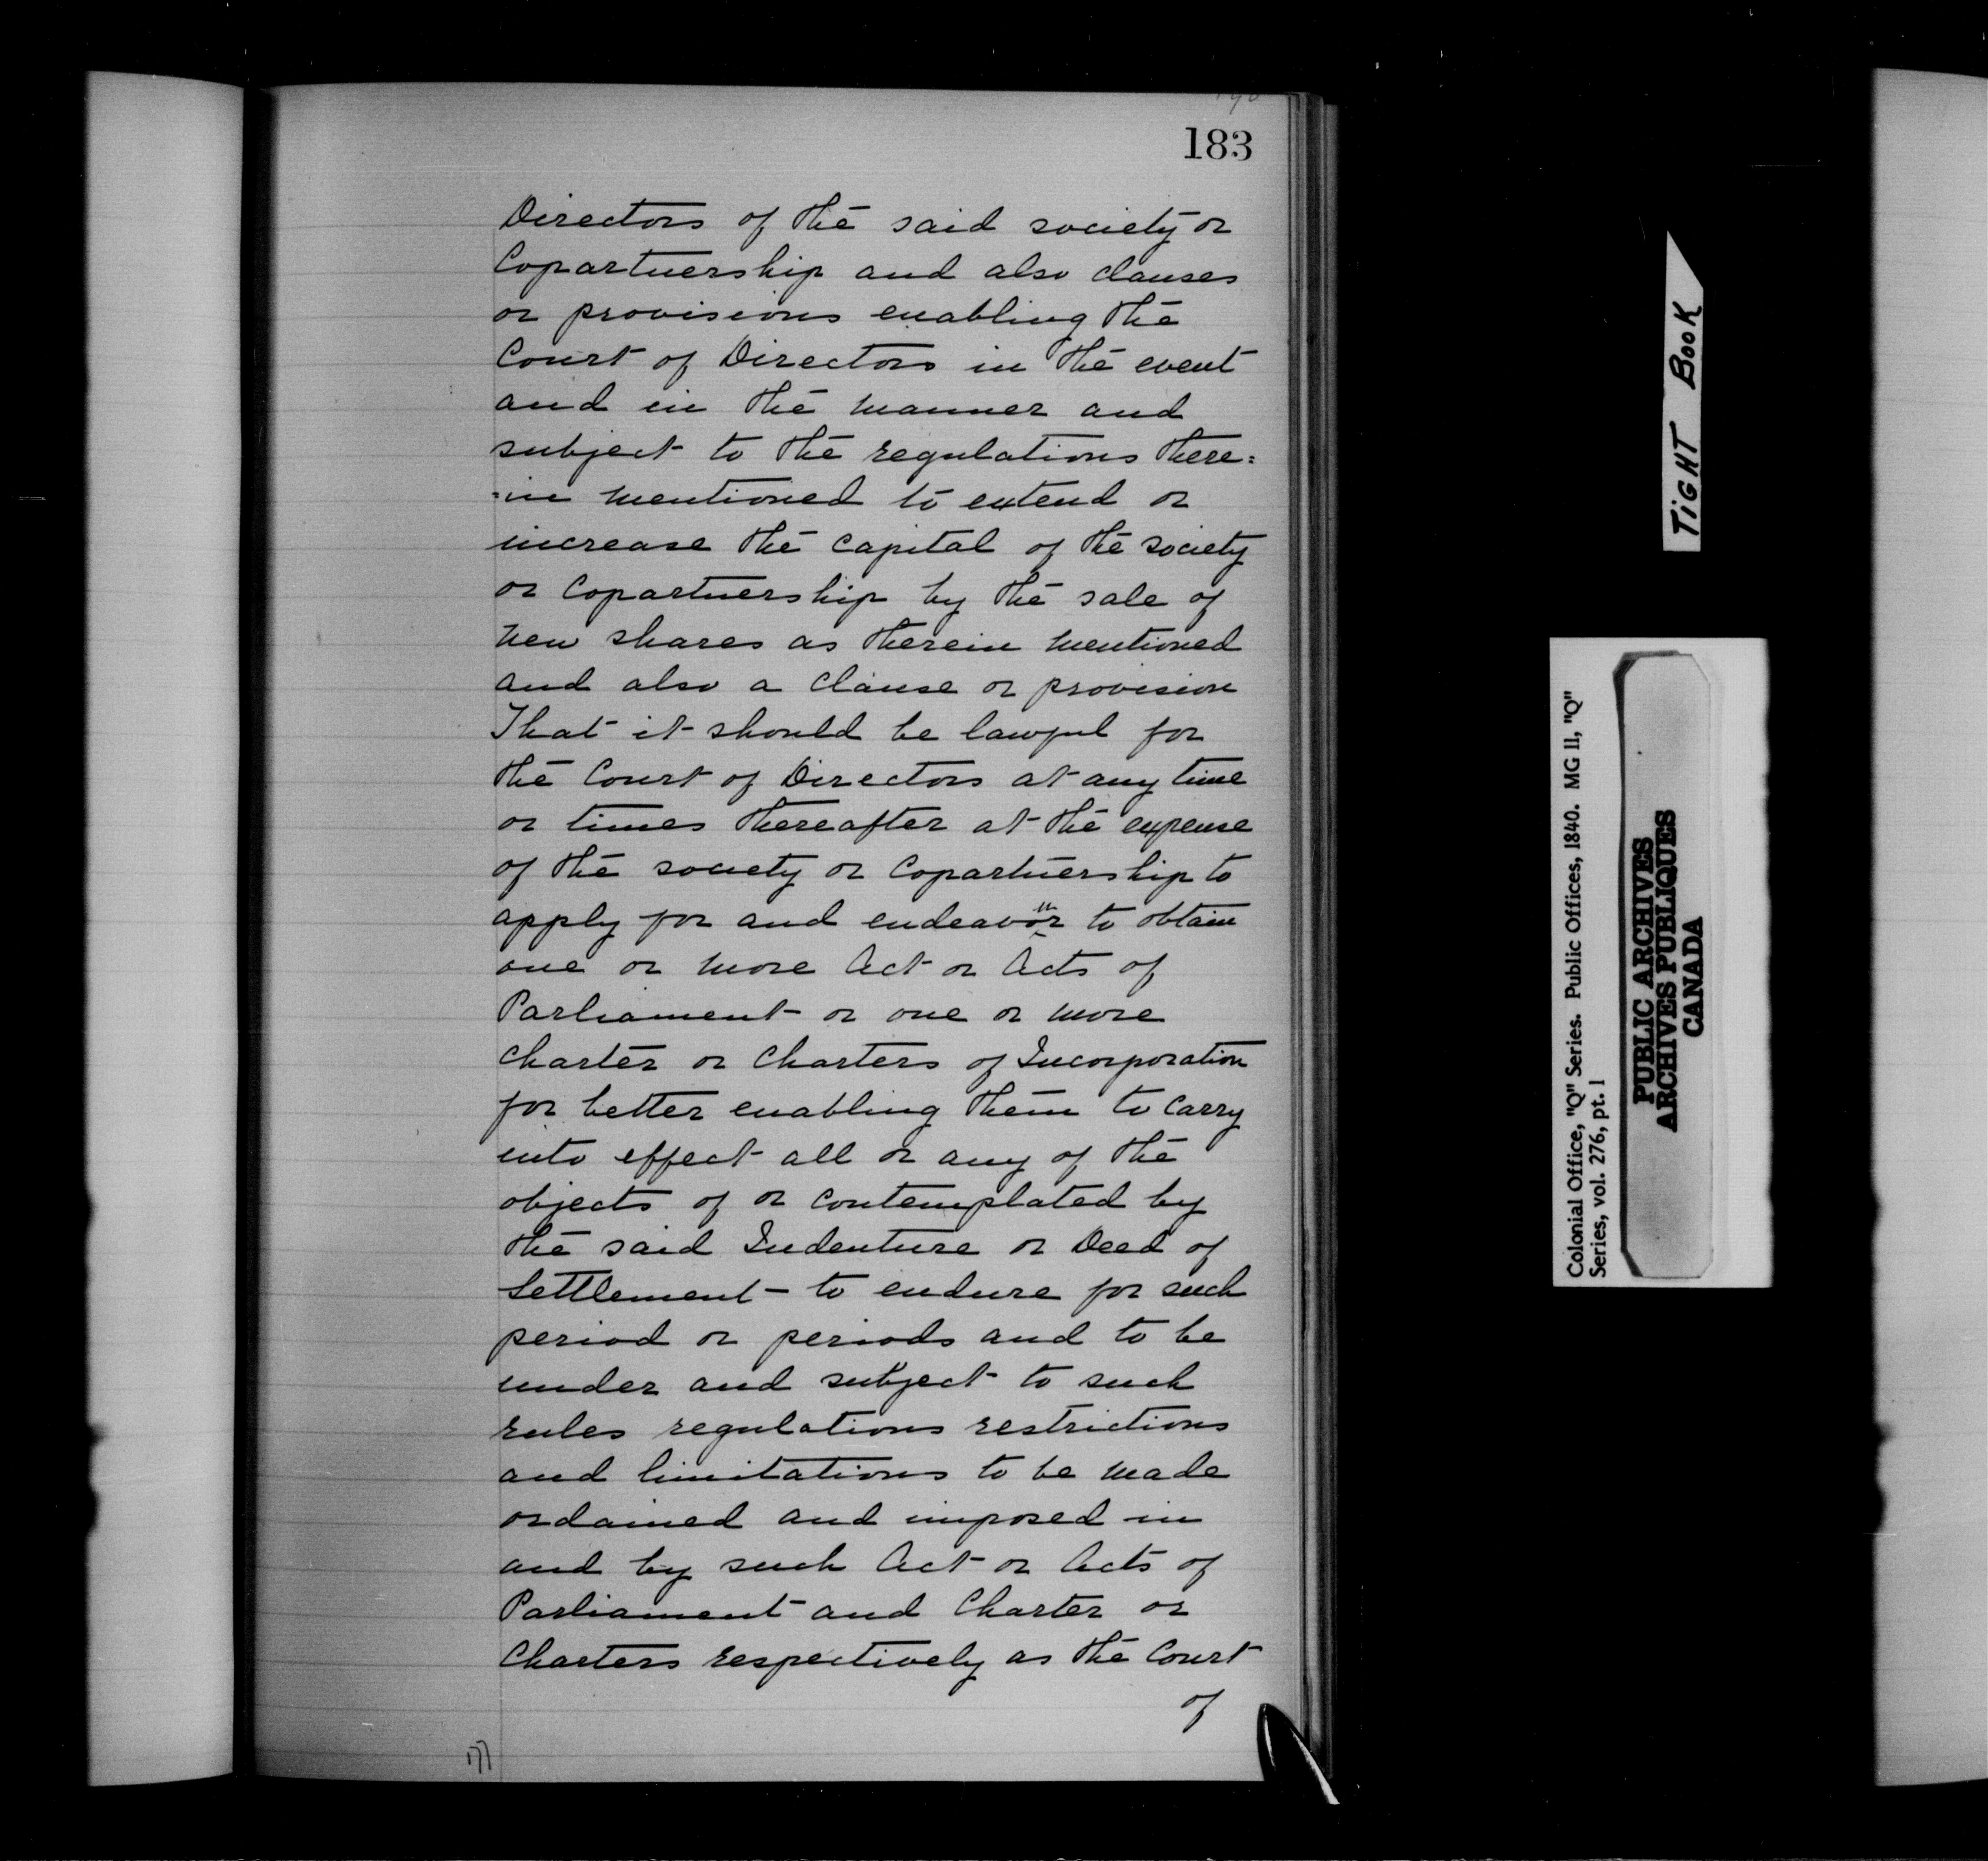 183
Directors of the said society or
Copartnership and also clauses
or provisions enabling the
Court of Directors in the event
and in the manner and
subject to the regulations there=
=in mentioned to extend or
increase the capital of the society
or Copartnership by the sale of
new shares as therein mentioned
and also a clause or provision
That it should be lawful for
the Court of Directors at any time
or times thereafter at the expense
of the society or Copartnership to
apply for and endeavour to obtain
one or more Act or Acts of
Parliament or one or more
charter or Charters of Incorporation
for better enabling them to carry
into effect all or any of the
objects of or contemplated by
the said Indenture or Deed of
Settlement – to endure for such
period or periods and to be
under and subject to such
rules regulations restrictions
and limitations to be made
ordained and imposed in
and by such Act or Acts of
Parliament and Charter or
Charters respectively as the Court
of
177
TIGHT BOOK
Colonial Office, "Q" Series. Public Offices, 1840. MG 11, "Q"
Series, vol. 276, pt. 1
PUBLIC ARCHIVES
ARCHIVES PUBLIQUES
CANADA